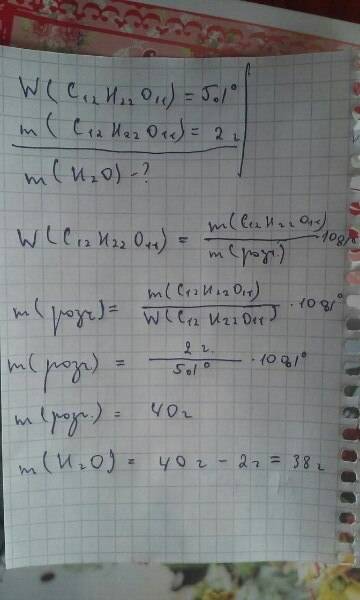 W(C₁₂H₂₂O₁₁) = 5%
m(C₁₂H₂₂O₁₁) = 2 г
m(H₂O) - ?
W(C₁₂H₂₂O₁₁) = m(C₁₂H₂₂O₁₁) / m(розч.) · 100%
m(розч) = m(C₁₂H₂₂O₁₁) / W(C₁₂H₂₂O₁₁) · 100%
m(розч) = 2 г. / 5% · 100%
m(розч.) = 40 г
m(H₂O) = 40 г - 2 г = 38 г